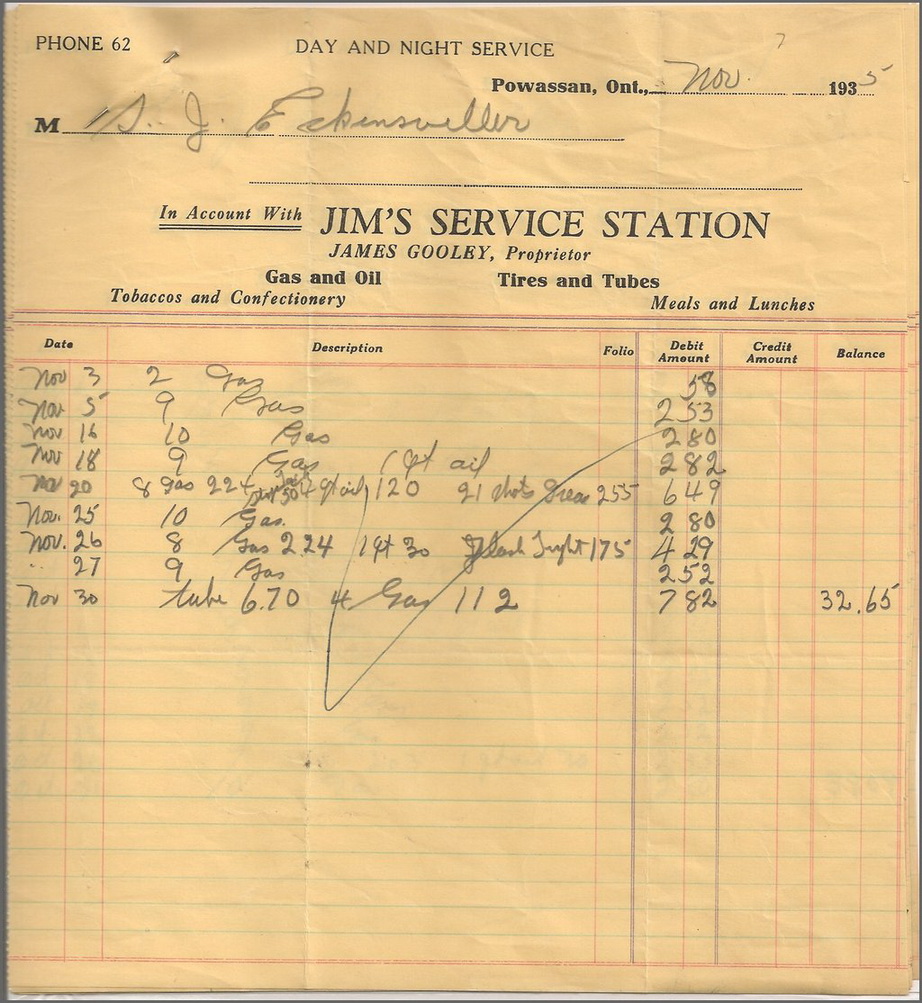 PHONE 62 DAY AND NIGHT SERVICE
Powassan, Ont., Nov. 1935
M S. J. Eckensviller
In Account With JIM'S SERVICE STATION
JAMES GOOLEY, Proprietor
Gas and Oil Tires and Tubes
Tobaccos and Confectionery Meals and Lunches
Date Description Folio Debit Amount Credit Amount Balance
Nov 3 2 Gas 58
Nov 5 9 Gas 2 53
Nov 16 10 Gas 2 80
Nov 18 9 Gas 1 qt oil 2 82
Nov 20 8 Gas 224 50 4 qt oil 120 21 shots Grease 255 6 49
Nov. 25 10 Gas. 2 80
Nov. 26 8 Gas 2 24 1 qt 30 Flash Light 175 4 29
" 27 9 Gas 2 52
Nov 30 tube 6.70 4 Gas 112 7 82 32.65